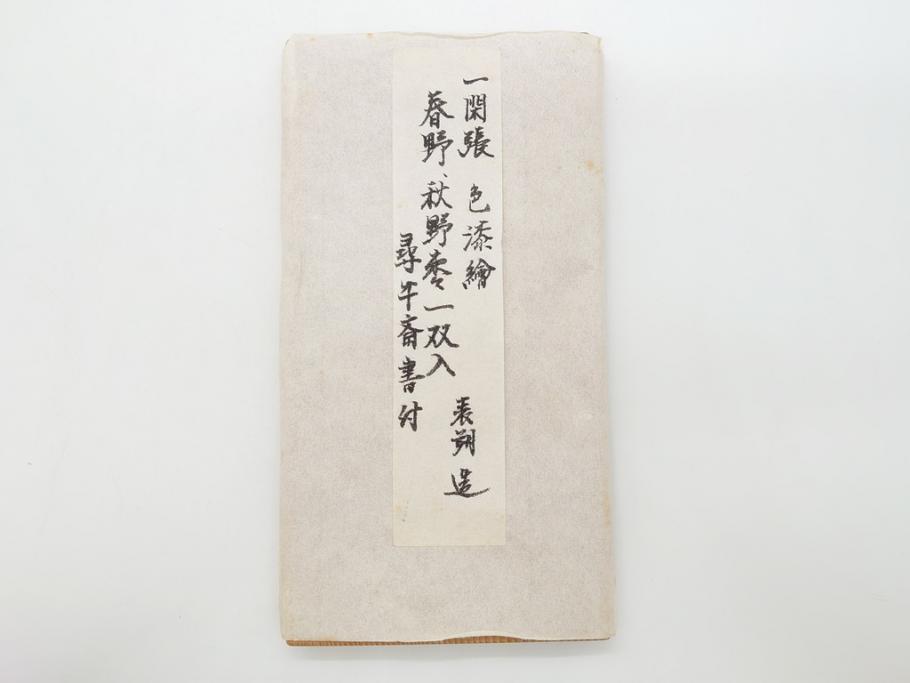 一閑張 色漆繪
春野、秋野棗一双入
表朔 造
尋牛斎書付